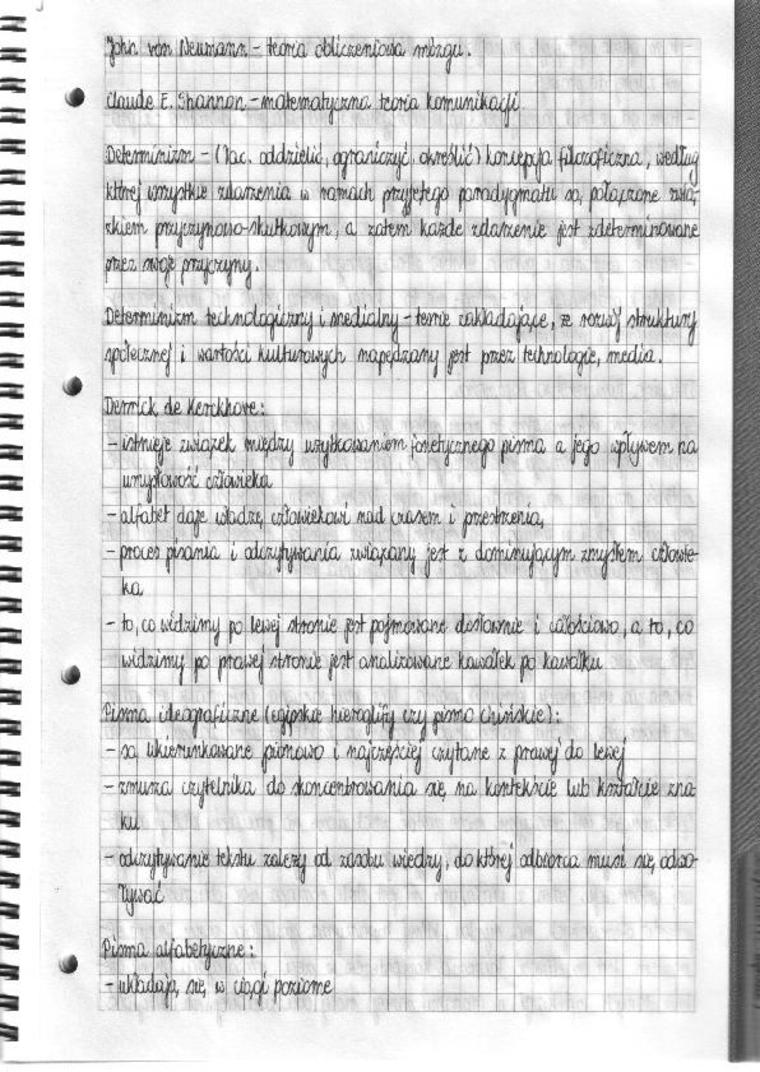 John von Neumann – teoria obliczeniowa mózgu.
Claude E. Shannon – matematyczna teoria komunikacji
Determinizm – (łac. oddzielić, ograniczyć, określić) koncepcja filozoficzna, według
której wszystkie zdarzenia w ramach przyjętego paradygmatu są połączone zwią-
zkiem przyczynowo-skutkowym, a zatem każde zdarzenie jest zdeterminowane
przez swoje przyczyny.
Determinizm technologiczny i medialny – teorie zakładające, że rozwój struktury
społecznej i wartości kulturowych napędzany jest przez technologie, media.
Derrick de Kerckhove:
– istnieje związek między użytkowaniem fonetycznego pisma a jego wpływem na
umysłowość człowieka
– alfabet daje władzę człowiekowi nad czasem i przestrzenią,
– proces pisania i odczytywania związany jest z dominującym zmysłem człowie-
ka
– to, co widzimy po lewej stronie jest pojmowane dosłownie i całościowo, a to, co
widzimy po prawej stronie jest analizowane kawałek po kawałku
Pisma ideograficzne (egipskie hieroglify czy pismo chińskie):
– są ukierunkowane pionowo i najczęściej czytane z prawej do lewej
– zmusza czytelnika do skoncentrowania się na kontekście lub kształcie zna-
ku
– odczytywanie tekstu zależy od zasobu wiedzy, do której odbiorca musi się odwo-
ływać
Pisma alfabetyczne:
– układają się w ciągi poziome